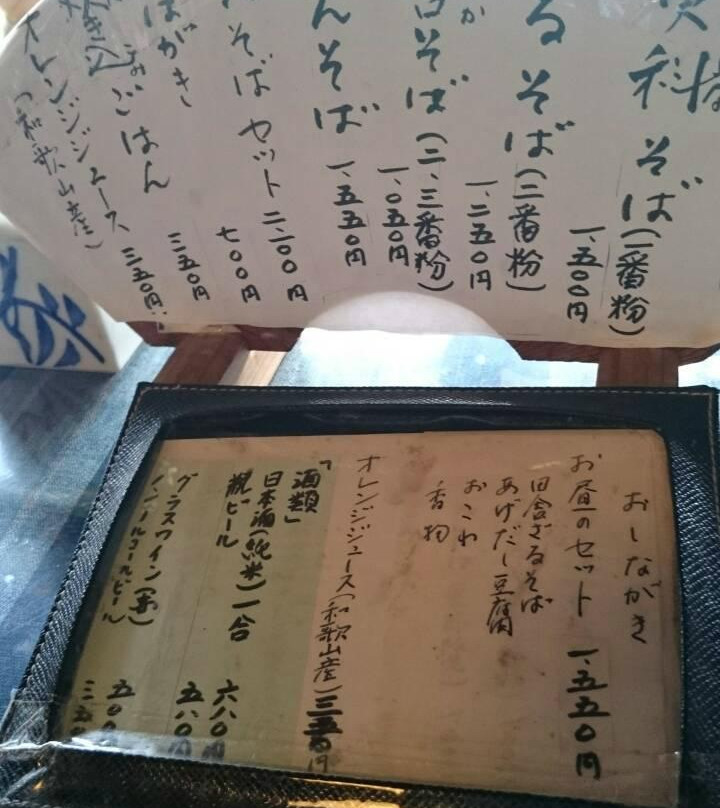 科そば(一番粉)
一、五〇〇円
るそば(二番粉)
一、二五〇円
そば(二、三番粉)
一、〇五〇円
んそば
一、五五〇円
そばセット 二、一〇〇円
はがき
七〇〇円
ごはん
三五〇円
オレンジジュース 三五〇円
(和歌山産)
おしながき
お昼のセット 一、五五〇円
田舎ざるそば
あげだし豆腐
おこわ
香物
オレンジジュース(和歌山産)三五〇円
「酒類」
日本酒(純米)一合 六八〇円
瓶ビール 五八〇円
グラスワイン(赤) 五〇〇
ノンアルコールビール 三五